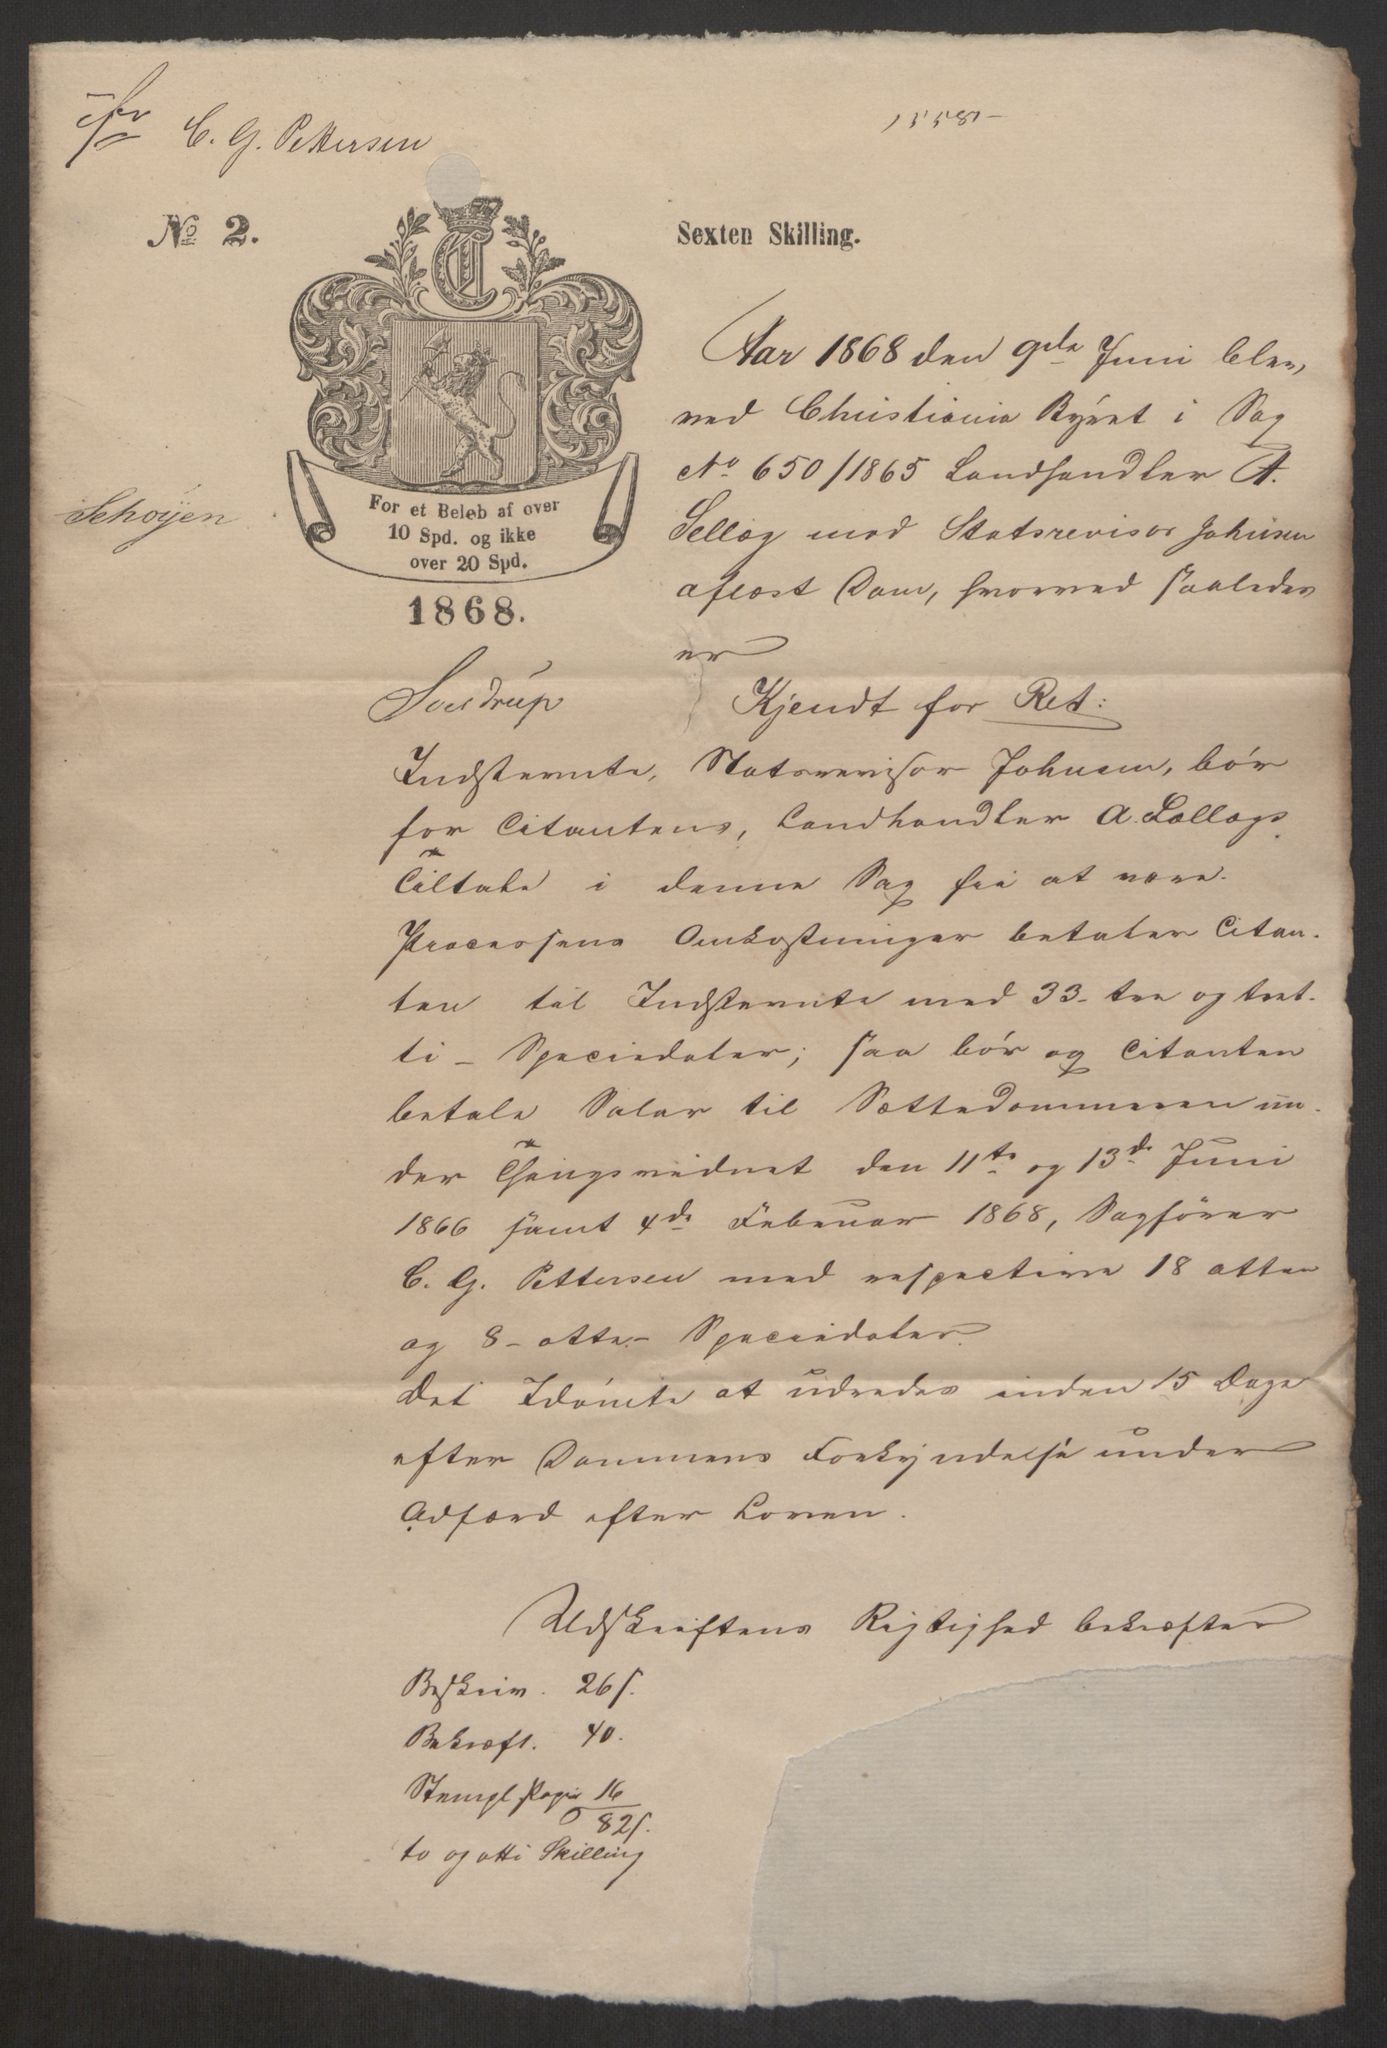 C. G. Pettersen
No 2.
Sexten Skilling.
Aar 1868 den 9de Juni blev,
ved Christiania Byret i Sag
No 650/1865 Landhandler A.
Sellæg mod Statsrevisor Johnsen
aflæst Dom, hvorved saaledes
er
Schøyen
For et Beløb af over
10 Spd. og ikke
over 20 Spd.
1868.
Kjendt for Ret:
Indstevnte, Statsrevisor Johnsen, bør
for Citantens, Landhandler A. Sællægs
Tiltale i denne Sag fri at være.
Processens Omkostninger betaler Citan-
ten til Indstevnte med 33- tre og tret-
ti - Speciedaler; saa bør og Citanten
betale Salær til Sættedommeren un-
der Thingsvidnet den 11te og 13de Juni
1866 samt 4de Februar 1868, Sagfører
C. G. Pettersen med respective 18 atten
og 8 - otte - Speciedaler.
Det Idømte at udredes inden 15 Dage
efter Dommens Forkyndelse under
Adfærd efter Loven.
Udskriftens Rigtighed bekræfter
Beskriv. 26 s.
Bekræft. 40.
Stempl. Papir 16
82 s.
to og otti Skilling